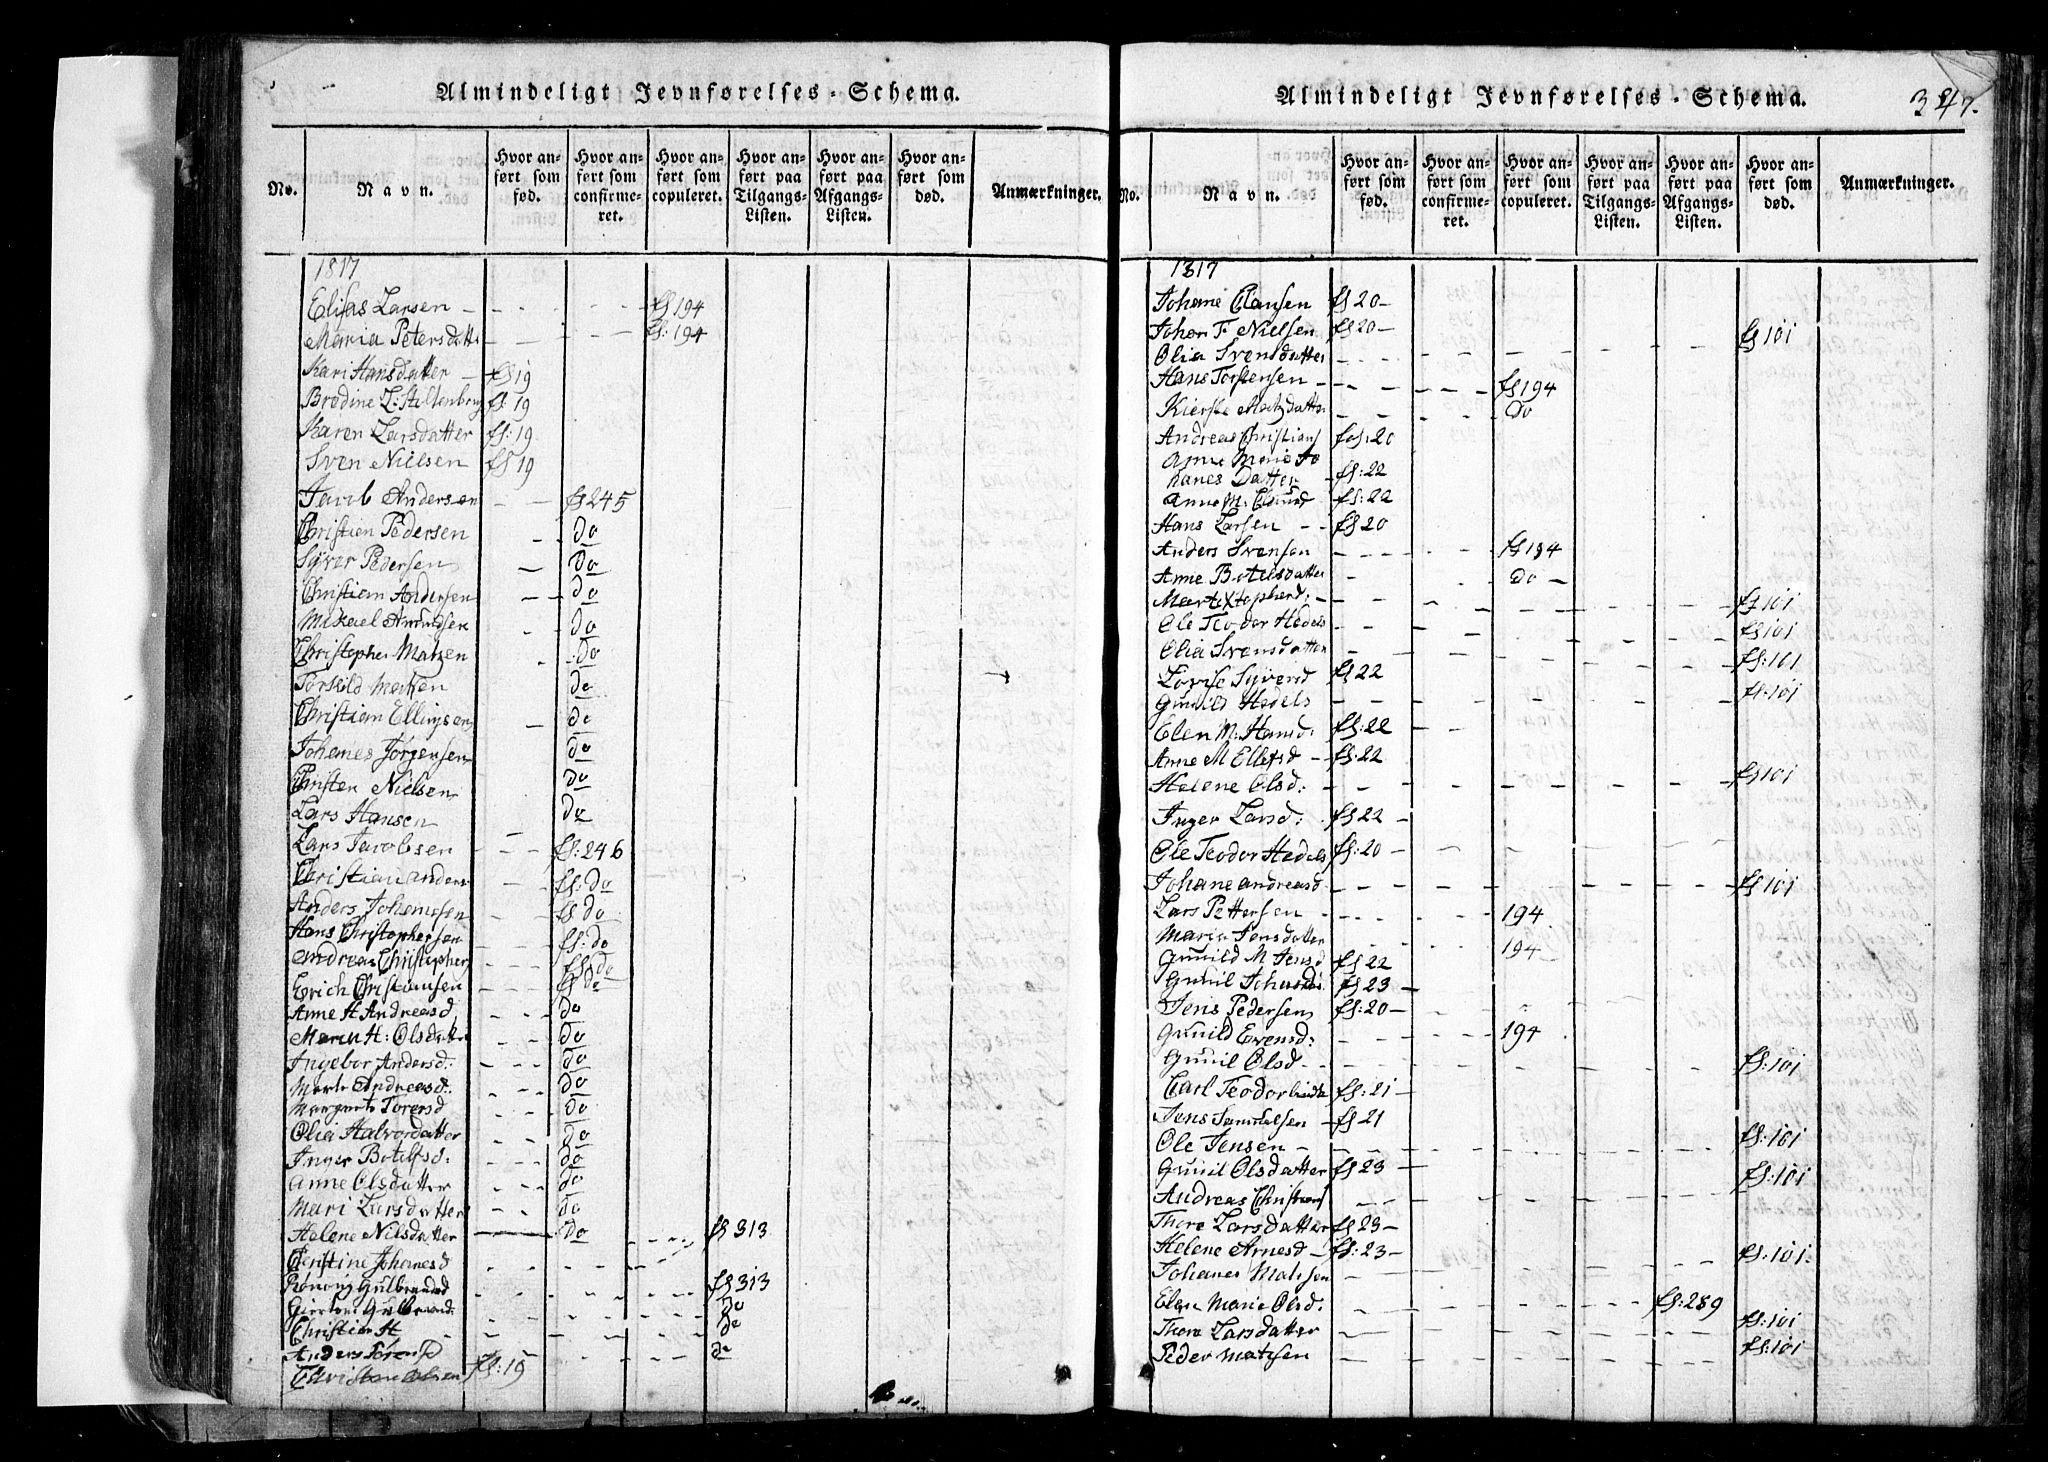 Almindeligt Jevnførelses-Schema.
No. Navn. Hvor anført som fød. Hvor anført som confirmeret. Hvor anført som copuleret. Hvor anført paa Tilgangs-Listen. Hvor anført paa Afgangs-Listen. Hvor anført som død. Anmærkninger.
1817
Elisas Larsen - - - - fS 194
Maria Petersdatt - - - fS: 194
Kari Hansdatter - fS 19
Brodine L: Stiltenberg fS: 19
Karen Larsdatter fS: 19
Sven Nielsen fS 19
Jacob Andersen - - fS 245
Christien Pedersen - - do
Syver Pedersen - do
Christian Andersen - do
Mikael Amundsen do
Christopher Matzen - do
Torskild do
Christian Ellingsen - do
Johannes Jørgensen do
Christen Nielsen do
Lars Hansen do
Lars Jacobsen - - fS: 246
Christian anders - - fS: do
Anders Johannesen - - fS do
Hans Christophersen - - fS: do
andreas Christophers - - - fS: do
Erich Christiansen - - - fS do
Anne H Andreasd - - - do
Maren H: Olsdatter - - do
Ingebor Andersd: - - do
Marte Andreasd: - - do
Margrete Toresd - - - do
Olia Halvordatter - - - do
Inger Botelfsd: - - - do
Anne Olsdatter - - - do
Mari Larsdatter - - do
Helene Nilsdatter do - - - fS 313
Christine Johanesd - - - - - -
Rønnoug Gulbransd - - - - - - fS 313
Gulbrands - - - - - - do
Christian H - - - - - do
Anders - - - - - do
Christian Olsen fS: 19
Almindeligt Jevnførelses-Schema. 347.
No. Navn. Hvor anført som fød. Hvor anført som confirmeret. Hvor anført som copuleret. Hvor anført paa Tilgangs-Listen. Hvor anført paa Afgangs-Listen. Hvor anført som død. Anmærkninger.
1817
Johane Clausen fS 20 -
Johan F. Nielsen fS 20 -
Olia Svensdatter - - - - - - - - fS 101
Hans Torstensen - - - - - - fS 194
Kierste Matzdatter - - - - do
Andreas Christians fS: 20
Anne Marie Jo
hanes Datter - fS: 22
Anne M. fS: 22
Hans Larsen - - fS 20
Anders Svensen - - - - - - fS 194
Anne Botelsdatter - - do -
Marte Xtopherd: - - - - - - - - fS 101
Ole Teodor Hedels - - - - - - - - fS 101
Olia Svensdatter - - - - - - - - fS: 101
Lovise Syversd fS 22
Gunild Hedels - - - - - - - - fS: 101
Elen M. Hansd: fS: 22
Anne M Ellefsd - fS: 22
Helene Olsd: - - - - - - - - fS 101
Inger Larsd: fS 22 -
Ole Teodor Hedels fS: 20 -
Johane andreasd - - - - - - - - fS 101
Lars Pettersen - - - - - - 194
Maria Jensdatter - - - - - 194
Gunild M Jensd fS 22
Gunil Johansd fS 23 -
Jens Pedersen fS: 20 -
Gunild Evensd: - - - - 194
Gunil Olsd - - - - - - - - fS: 101
Carl Teodor fS: 21 -
Jens Samuelsen - fS 21
Ole Jensen - - - - - - - - fS: 101
Gunil Olsdatter fS 23 - fS: 101
Andreas Christians - - - - - - - -
Thore Larsdatter fS 23 -
Helene Arnesd - fS: 23 - fS: 101.
Johanes Matzsen - - - - - - - -
Elen Marie Olsd. - - - - - - - fS: 289
Thore Larsdatter - - - - - - - - fS: 101
Peder Matzsen - - - - - - - - fS: 101